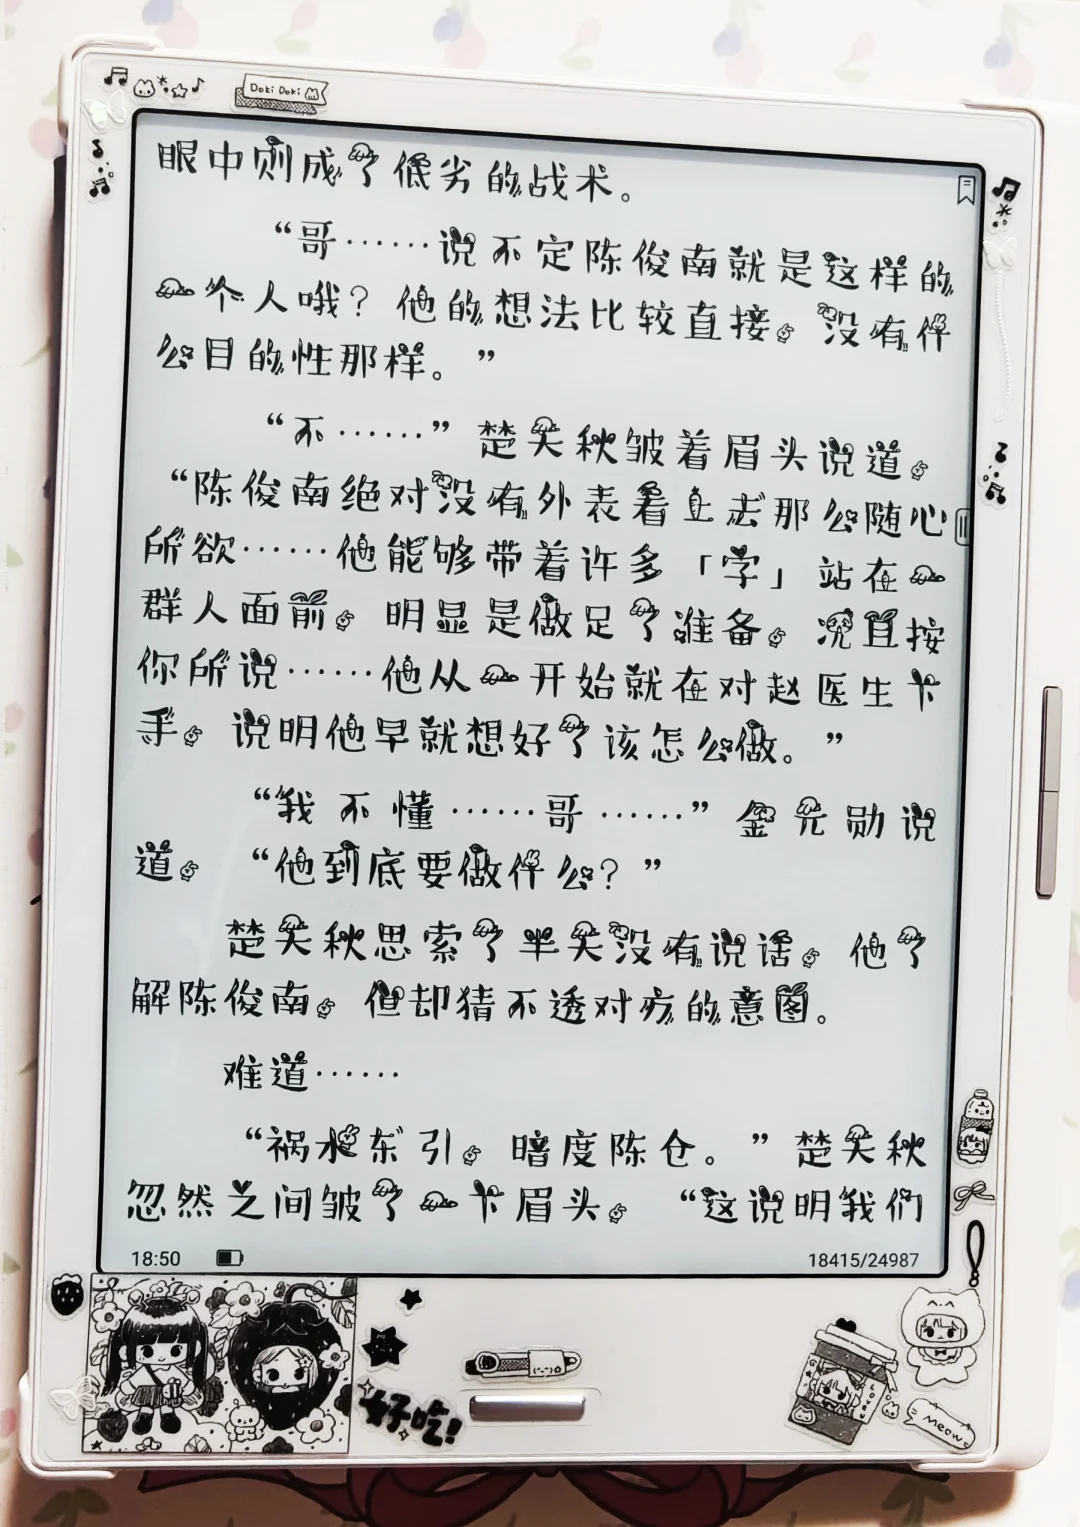 Doki Doki
眼中则成了低劣的战术。
“哥……说不定陈俊南就是这样的
一个人哦？他的想法比较直接，没有什
么目的性那样。”
“不……”楚天秋皱着眉头说道，
“陈俊南绝对没有外表看上去那么随心
所欲……他能够带着许多「字」站在一
群人面前，明显是做足了准备，况且按
你所说……他从一开始就在对赵医生下
手，说明他早就想好了该怎么做。”
“我不懂……哥……”金元勋说
道，“他到底要做什么？”
楚天秋思索了半天没有说话，他了
解陈俊南，但却猜不透对方的意图。
难道……
“祸水东引，暗度陈仓。”楚天秋
忽然之间皱了一下眉头，“这说明我们
18:50
18415/24987
好吃!
Meow